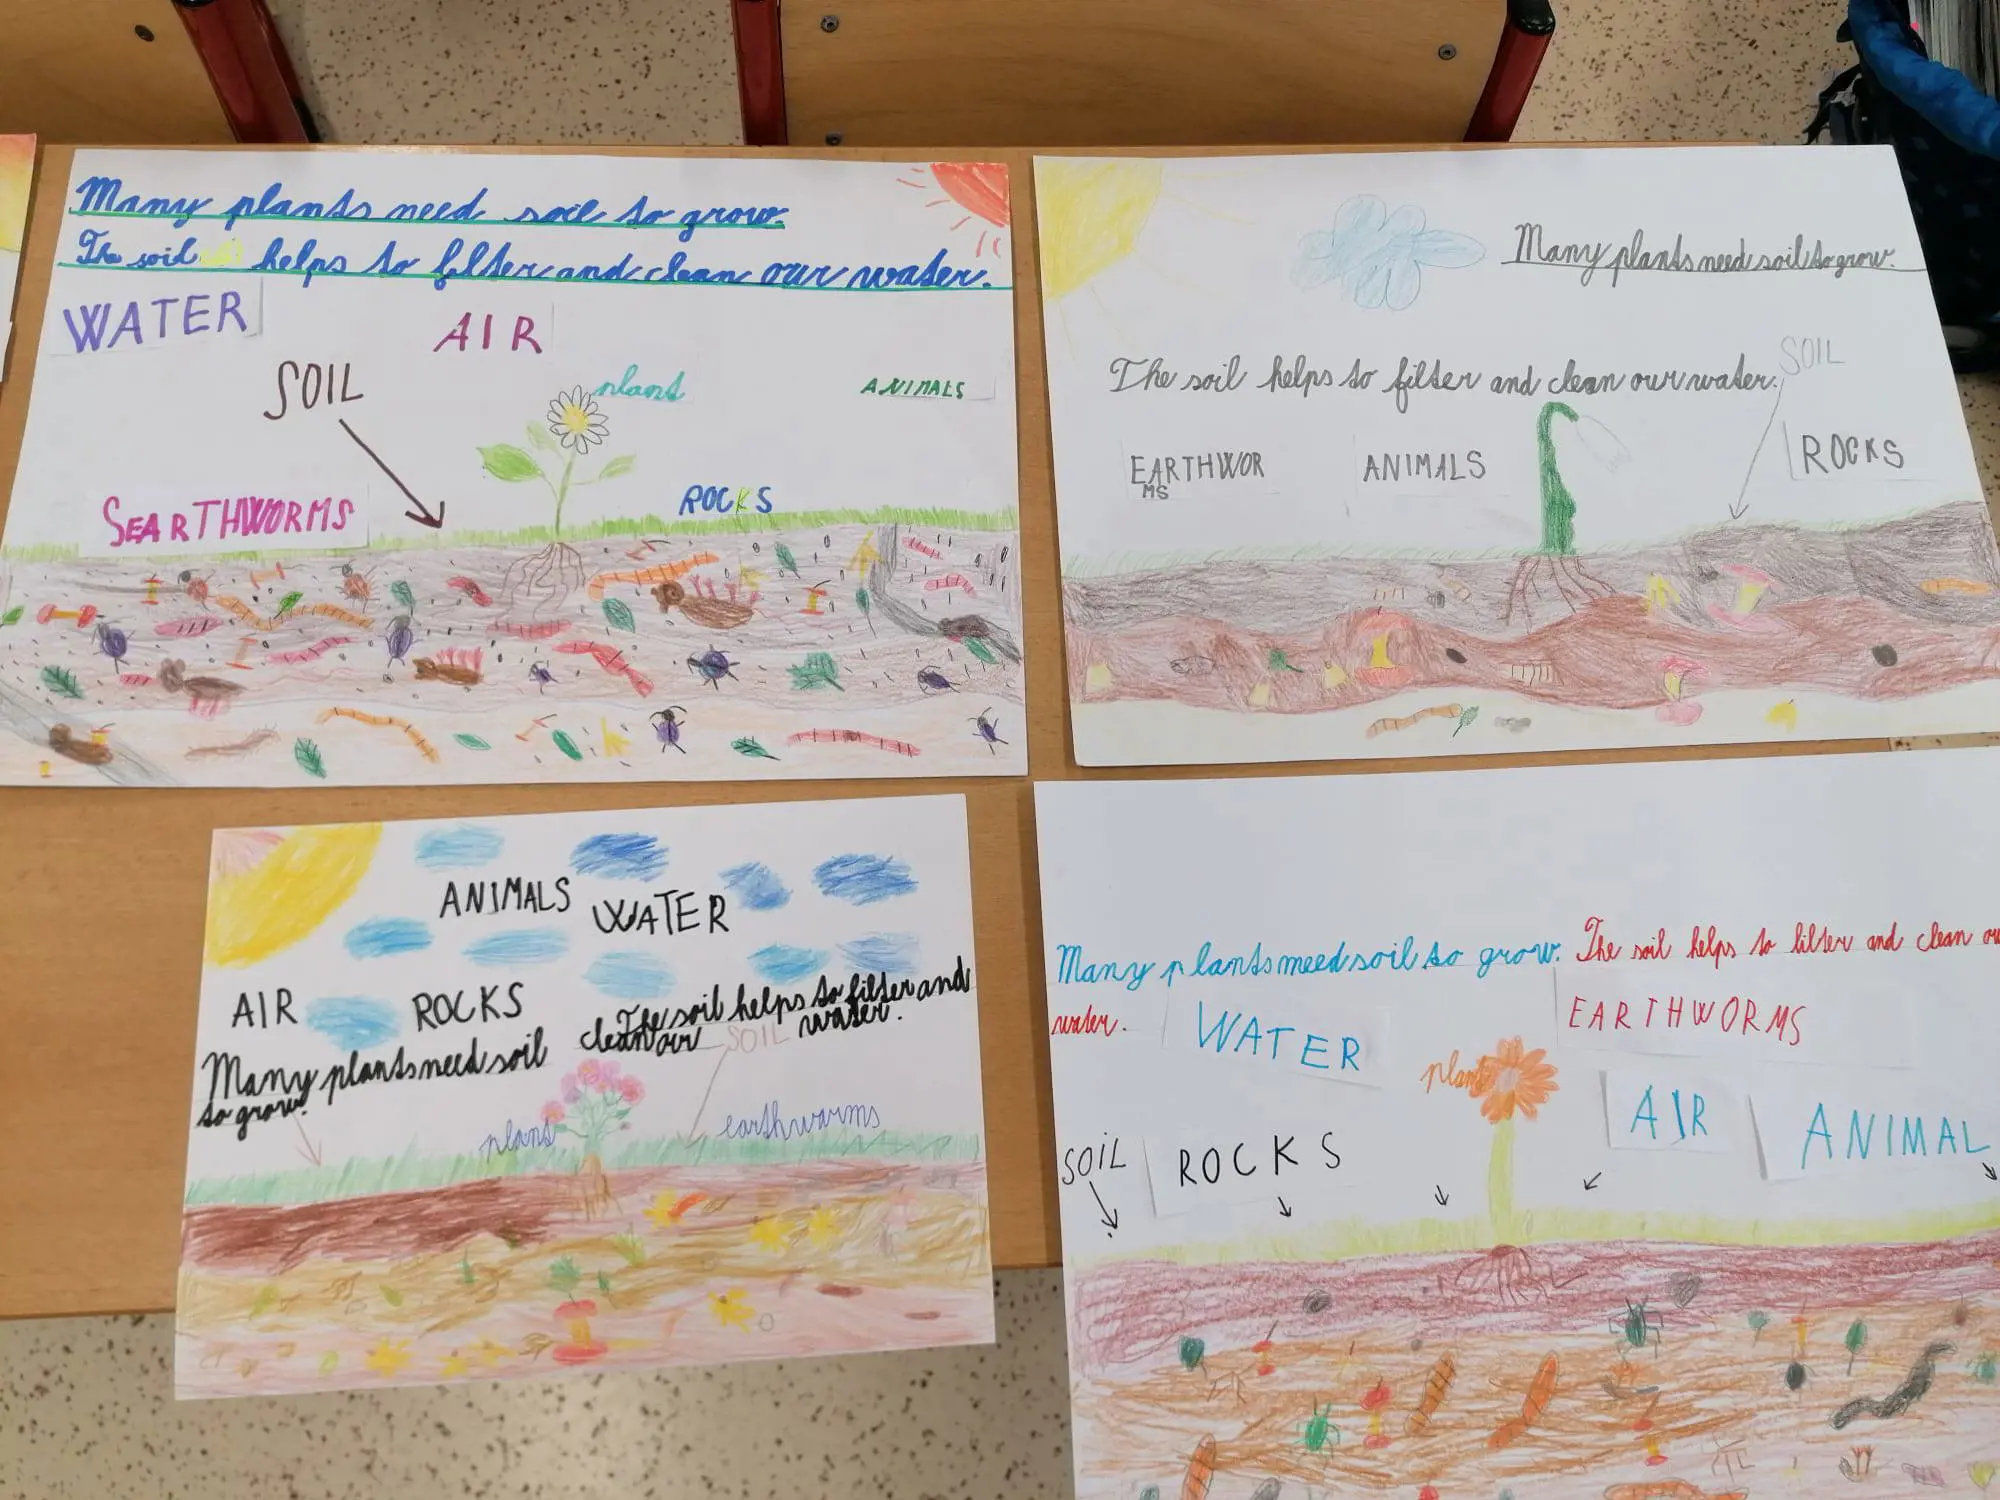 Many plants need soil to grow.
The soil helps to filter and clean our water.
WATER
AIR
SOIL
plant
ANIMALS
SEARTHWORMS
ROCKS
Many plants need soil to grow.
The soil helps to filter and clean our water.
SOIL
EARTHWOR
MS
ANIMALS
ROCKS
ANIMALS
WATER
AIR
ROCKS
Many plants need soil
to grow.
The soil helps to filter and
clean our water.
SOIL
plant
earthwarms
Many plants need soil to grow. The soil helps to filter and clean ou
water.
WATER
EARTHWORMS
plant
AIR
ANIMAL
SOIL
ROCKS